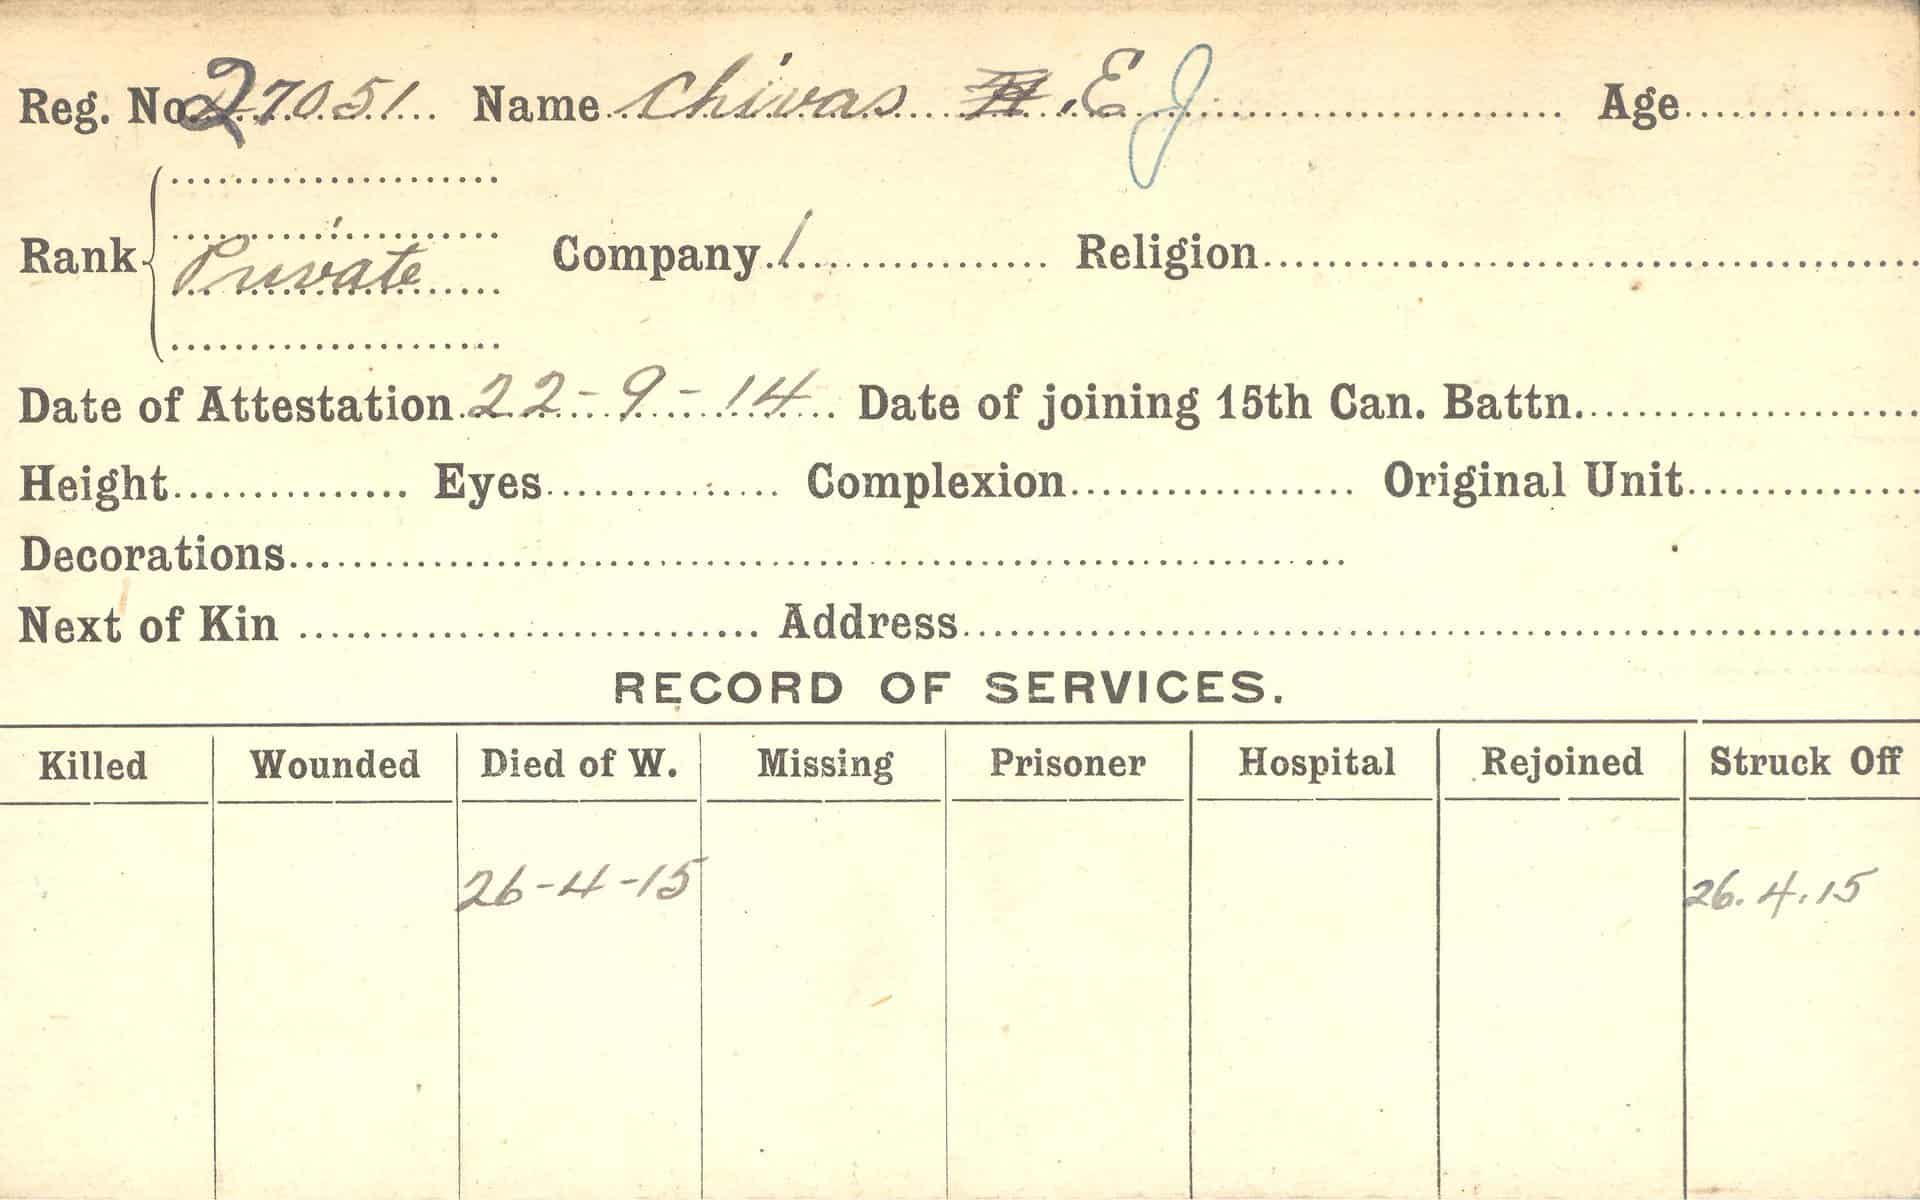 Reg. No. 27051 Name Chivas E J Age
Rank Private Company 1 Religion
Date of Attestation 22-9-14 Date of joining 15th Can. Battn.
Height Eyes Complexion Original Unit
Decorations
Next of Kin Address
RECORD OF SERVICES.
Killed Wounded Died of W. Missing Prisoner Hospital Rejoined Struck Off
26-4-15 26.4.15